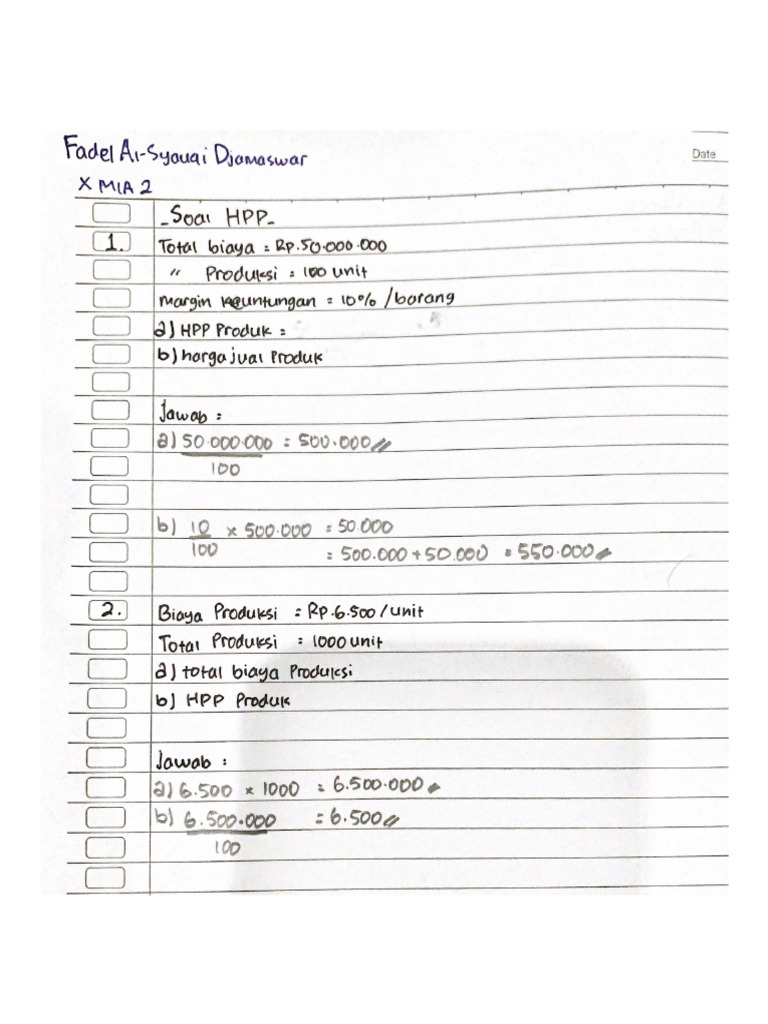 Fadel Al-Syauqi Djamaswar
Date
X MIA 2
- Soal HPP -
1. Total biaya = Rp.50.000.000
" Produksi = 100 unit
margin keuntungan = 10% /barang
a) HPP Produk =
b) harga jual Produk
Jawab :
a) 50.000.000 = 500.000 //
100
b) 10 x 500.000 = 50.000
100 = 500.000 + 50.000 = 550.000 //
2. Biaya Produksi = Rp.6.500/unit
Total Produksi = 1000 unit
a) total biaya Produksi
b) HPP Produk
Jawab :
a) 6.500 x 1000 = 6.500.000 //
b) 6.500.000 = 6.500 //
100